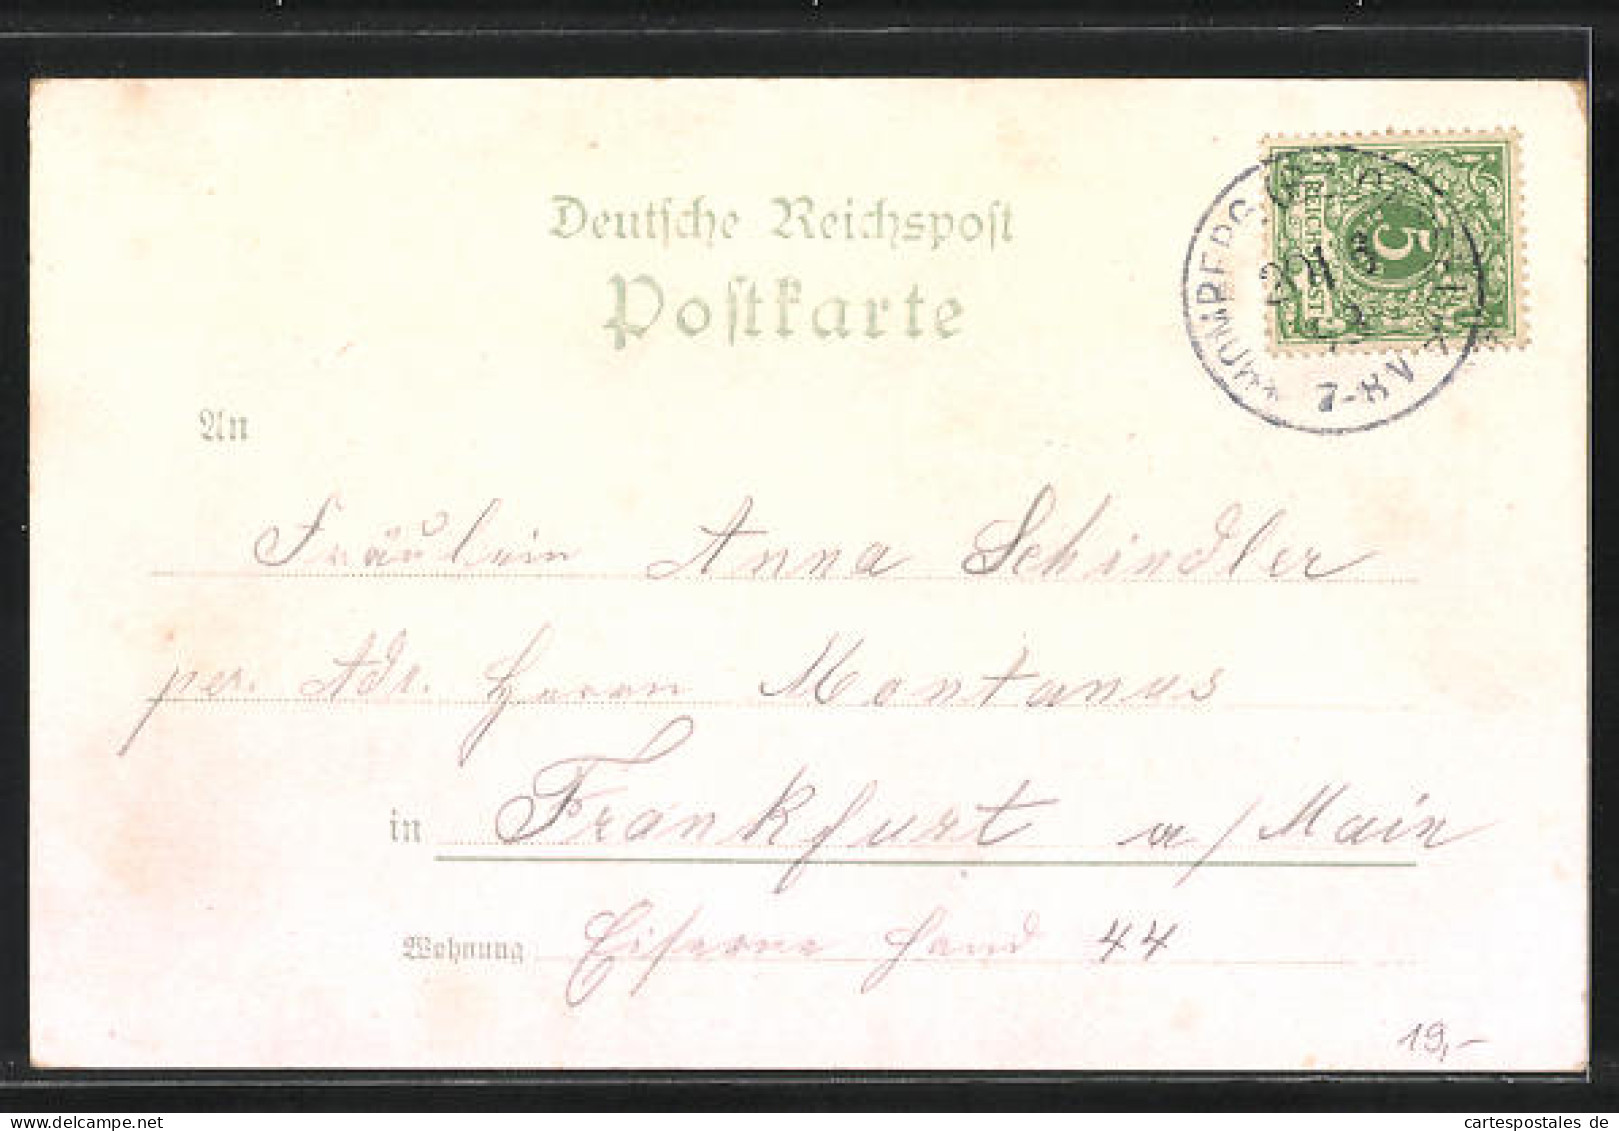 Deutsche Reichspost
Postkarte
5
REICHSPOST
7-8V
An
Fräulein Anna Schindler
per. Adr. Herrn Montanus
in Frankfurt a/Main
Wohnung Eiserne Hand 44
19,-
cartespostales de